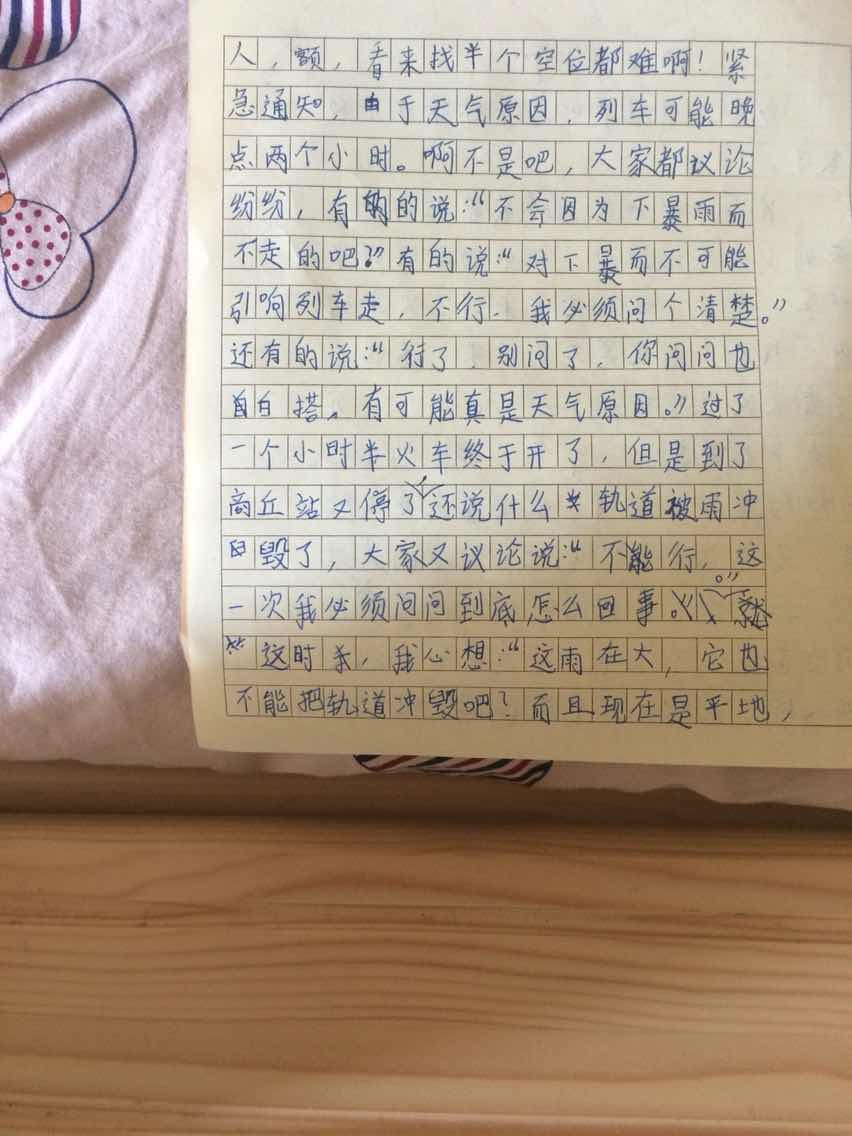 人，额，看来找半个空位都难啊！紧
急通知，由于天气原因，列车可能晚
点两个小时。啊不是吧，大家都议论
纷纷，有的的说：“不会因为下暴雨而
不走的吧？”有的说：“对下暴而不可能
引响列车走，不行，我必须问个清楚。”
还有的说：“行了，别问了，你问问也
白搭。有可能真是天气原因。”过了
一个小时半火车终于开了，但是到了
商丘站又停了，还说什么轨道被雨冲
毁了，大家又议论说：“不能行，这
一次我必须问问到底怎么回事。”
这时，我心想：“这雨在大，它也
不能把轨道冲毁吧？而且现在是平地，